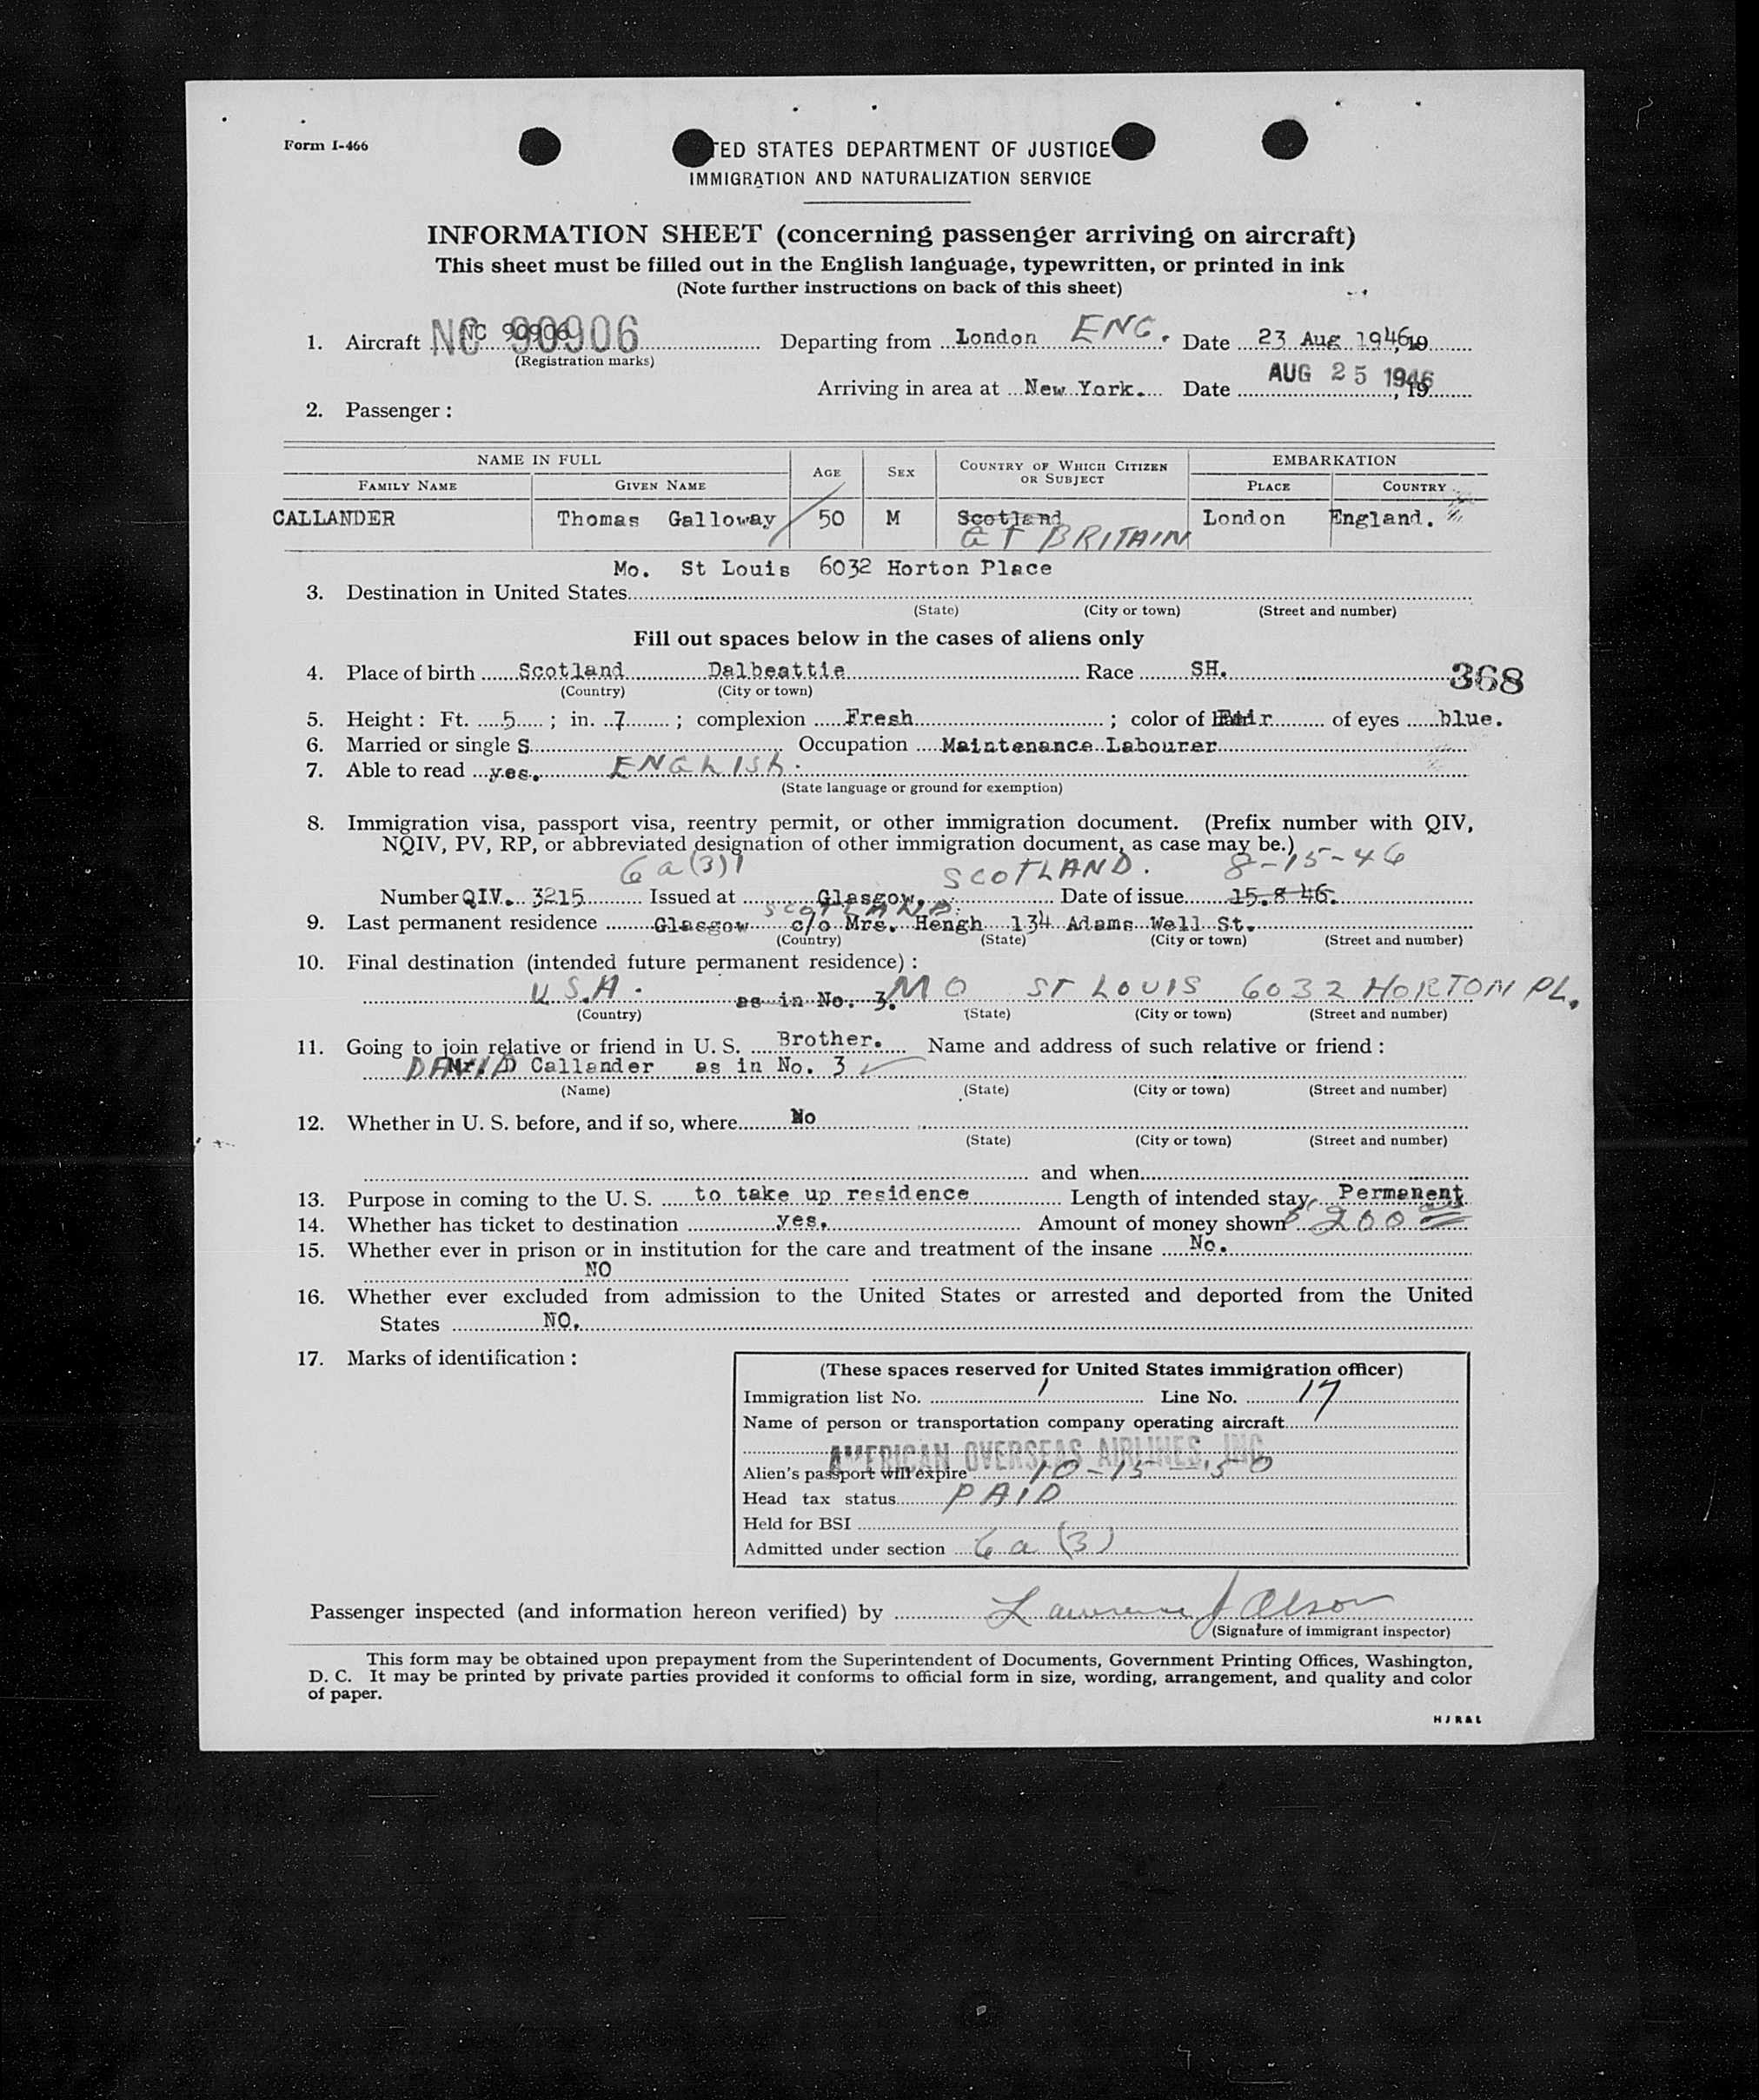 Form I-466
TED STATES DEPARTMENT OF JUSTICE
IMMIGRATION AND NATURALIZATION SERVICE
INFORMATION SHEET (concerning passenger arriving on aircraft)
This sheet must be filled out in the English language, typewritten, or printed in ink
(Note further instructions on back of this sheet)
1. Aircraft NC 90906 NC 90906 Departing from London ENG. Date 23 Aug 1946, 19
(Registration marks)
Arriving in area at New York. Date AUG 25 1946, 19
2. Passenger :
NAME IN FULL AGE SEX COUNTRY OF WHICH CITIZEN OR SUBJECT EMBARKATION
FAMILY NAME GIVEN NAME PLACE COUNTRY
CALLANDER Thomas Galloway 50 M Scotland London England.
GT BRITAIN
Mo. St Louis 6032 Horton Place
3. Destination in United States
(State) (City or town) (Street and number)
Fill out spaces below in the cases of aliens only
4. Place of birth Scotland Dalbeattie Race SH. 368
(Country) (City or town)
5. Height : Ft. 5 ; in. 7 ; complexion Fresh ; color of hair Fair of eyes blue.
6. Married or single S Occupation Maintenance Labourer
7. Able to read yes. ENGLISH.
(State language or ground for exemption)
8. Immigration visa, passport visa, reentry permit, or other immigration document. (Prefix number with QIV,
NQIV, PV, RP, or abbreviated designation of other immigration document, as case may be.)
6a(3)1 SCOTLAND. 8-15-46
Number QIV. 3215 Issued at Glasgow. Date of issue 15.8 46.
SCOTLAND.
9. Last permanent residence Glasgow c/o Mrs. Hengh 134 Adams Well St.
(Country) (State) (City or town) (Street and number)
10. Final destination (intended future permanent residence) :
U.S.A. as in No. 3. MO ST LOUIS 6032 HORTON PL.
(Country) (State) (City or town) (Street and number)
11. Going to join relative or friend in U. S. Brother. Name and address of such relative or friend :
DAVID Mr. D Callander as in No. 3
(Name) (State) (City or town) (Street and number)
12. Whether in U. S. before, and if so, where No
(State) (City or town) (Street and number)
and when
13. Purpose in coming to the U. S. to take up residence Length of intended stay Permanent
14. Whether has ticket to destination yes. Amount of money shown $200
15. Whether ever in prison or in institution for the care and treatment of the insane No.
NO
16. Whether ever excluded from admission to the United States or arrested and deported from the United
States NO.
17. Marks of identification :
(These spaces reserved for United States immigration officer)
Immigration list No. 1 Line No. 17
Name of person or transportation company operating aircraft
AMERICAN OVERSEAS AIRLINES, INC
Alien's passport will expire 10-15-50
Head tax status PAID
Held for BSI
Admitted under section 6a (3)
Passenger inspected (and information hereon verified) by Lawrence J Olson
(Signature of immigrant inspector)
This form may be obtained upon prepayment from the Superintendent of Documents, Government Printing Offices, Washington,
D. C. It may be printed by private parties provided it conforms to official form in size, wording, arrangement, and quality and color
of paper.
HJR&L